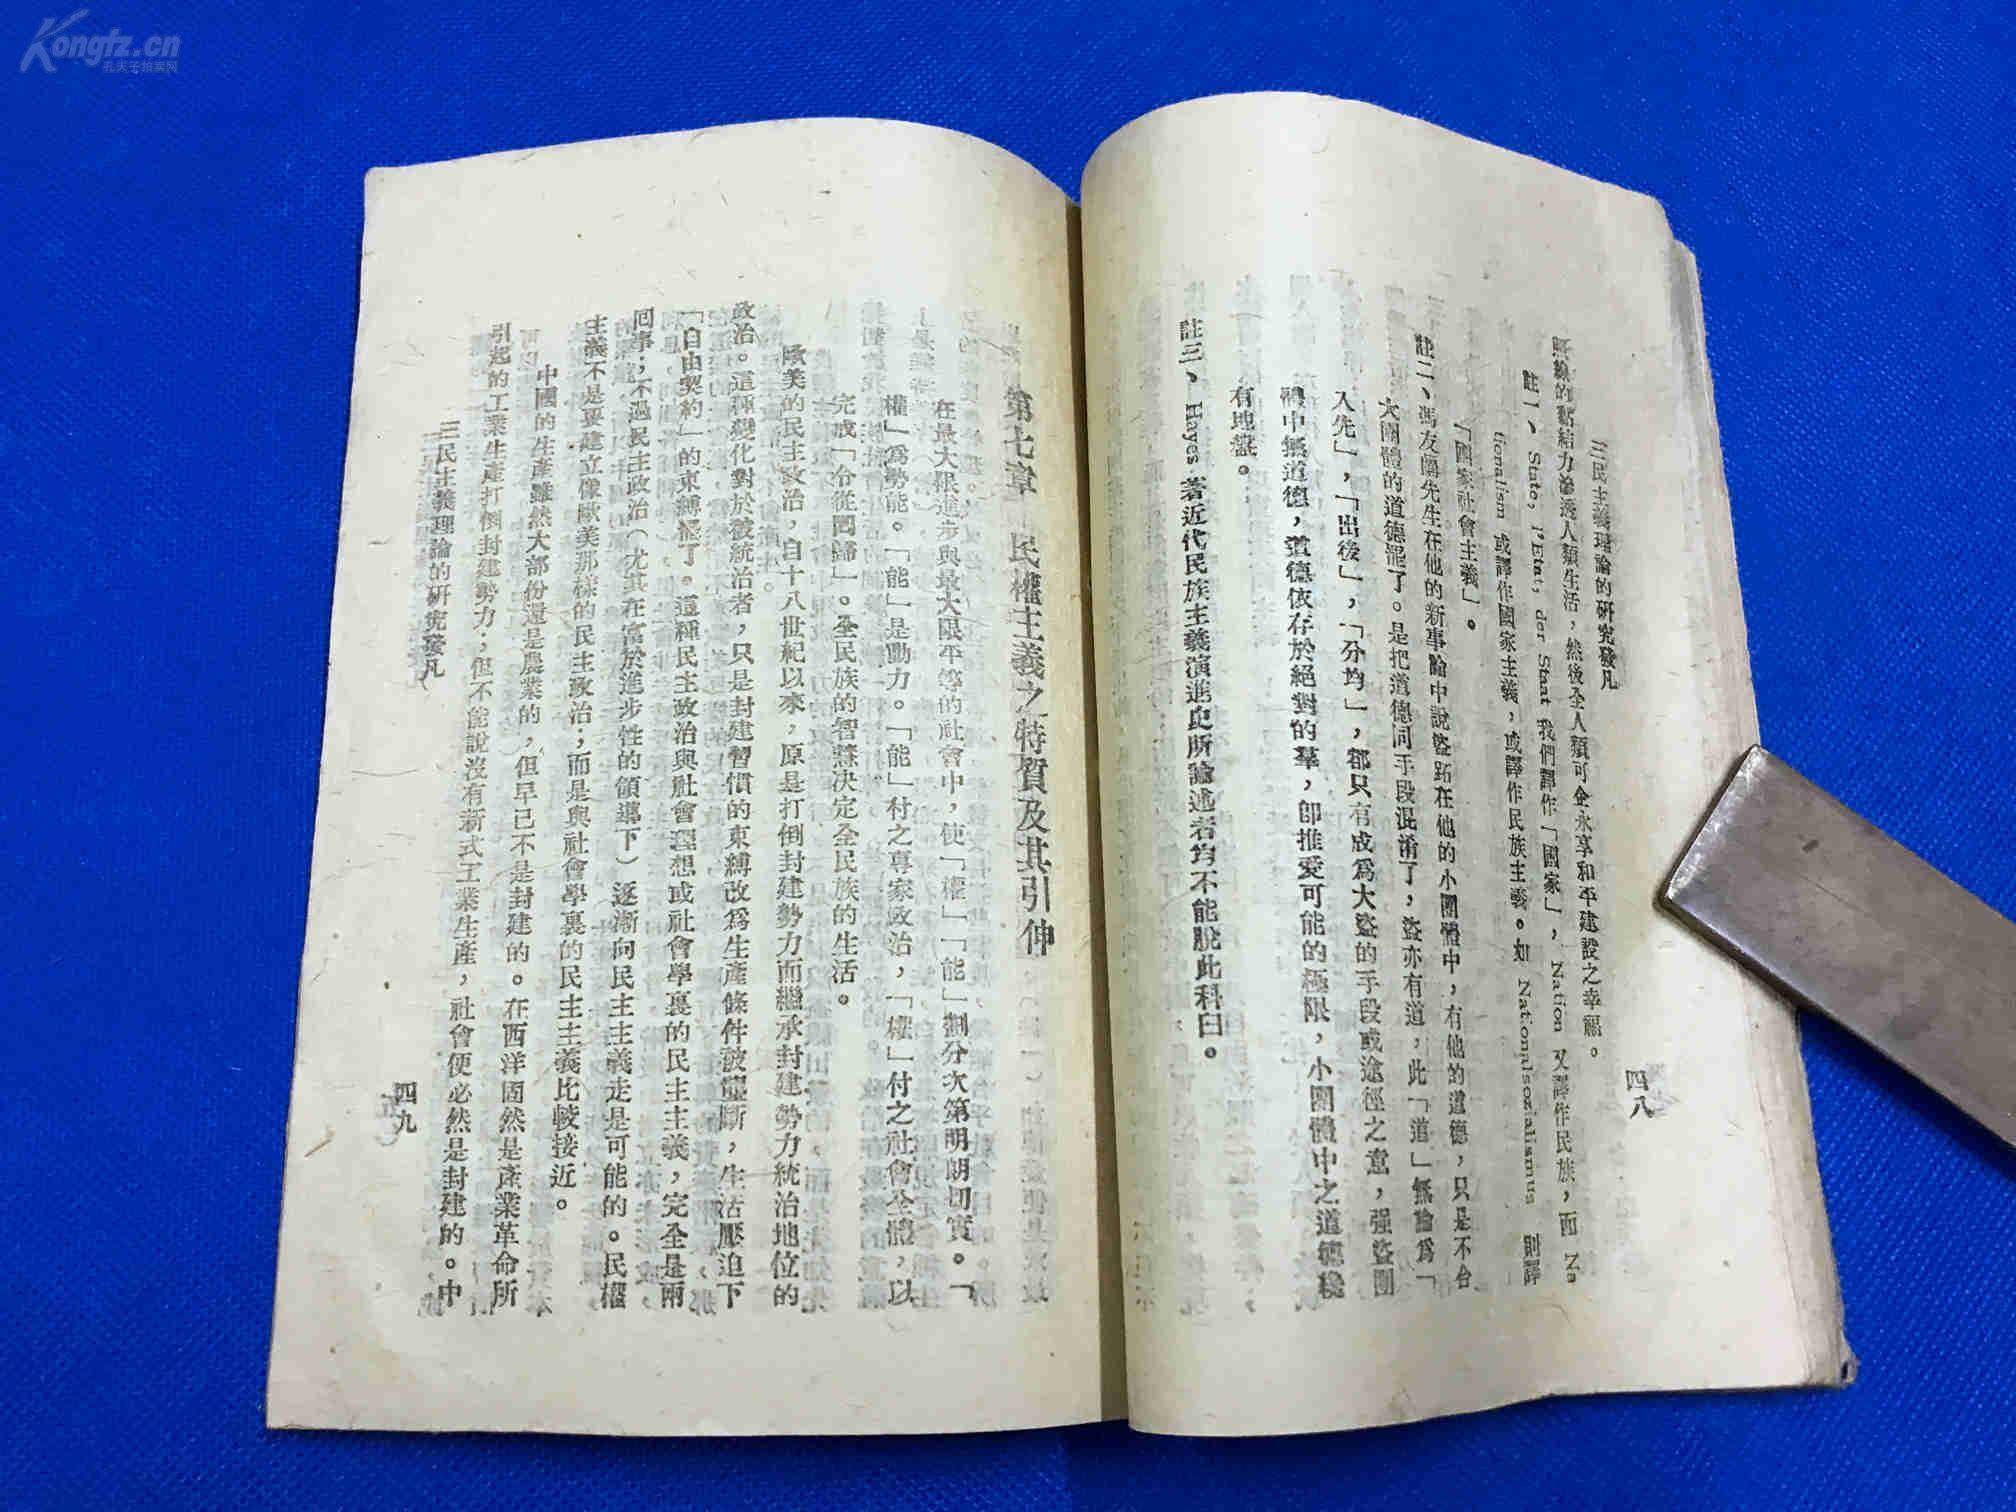 Kongfz.cn
孔夫子拍卖网
三民主義理論的研究發凡
四八
照線的黏結力滲透人類生活，然後全人類可企永享和平建設之幸福。
註一、State, l'Etat, der Staat 我們譯作「國家」，Nation 又譯作民族，而 Na
tionalism 或譯作國家主義，或譯作民族主義。如 Nationalsozialismus 則譯
「國家社會主義」。
註二、馮友蘭先生在他的新事論中說盜跖在他的小團體中，有他的道德，只是不合
大團體的道德罷了。是把道德同手段混淆了，盜亦有道，此「道」無論爲「
入先」，「出後」，「分均」，都只有成爲大盜的手段或途徑之意，强盜團
體中無道德，道德依存於絕對的羣，卽推愛可能的極限，小團體中之道德幾
有地獄。
註三、Hayes 著近代民族主義演進史所論述者均不能脫此科臼。
第七章 民權主義之特質及其引伸
在最大限進步與最大限平等的社會中，使「權」「能」劃分次第明朗切實。「
權」爲勢能。「能」是動力。「能」付之專家政治，「權」付之社會全體，以
完成「令從同歸」。全民族的智慧决定全民族的生活。
歐美的民主政治，自十八世紀以來，原是打倒封建勢力而繼承封建勢力統治地位的
政治。這種變化對於被統治者，只是封建習慣的束縛改爲生產條件被壟斷，生活壓迫下
「自由契約」的束縛罷了。這種民主政治與社會理想或社會學裏的民主主義，完全是兩
囘事；不過民主政治（尤其在富於進步性的領導下）逐漸向民主主義走是可能的。民權
主義不是要建立像歐美那樣的民主政治；而是與社會學裏的民主主義比較接近。
中國的生產雖然大部份還是農業的，但早已不是封建的。在西洋固然是產業革命所
引起的工業生產打倒封建勢力；但不能說沒有新式工業生產，社會便必然是封建的。中
三民主義理論的研究發凡
四九